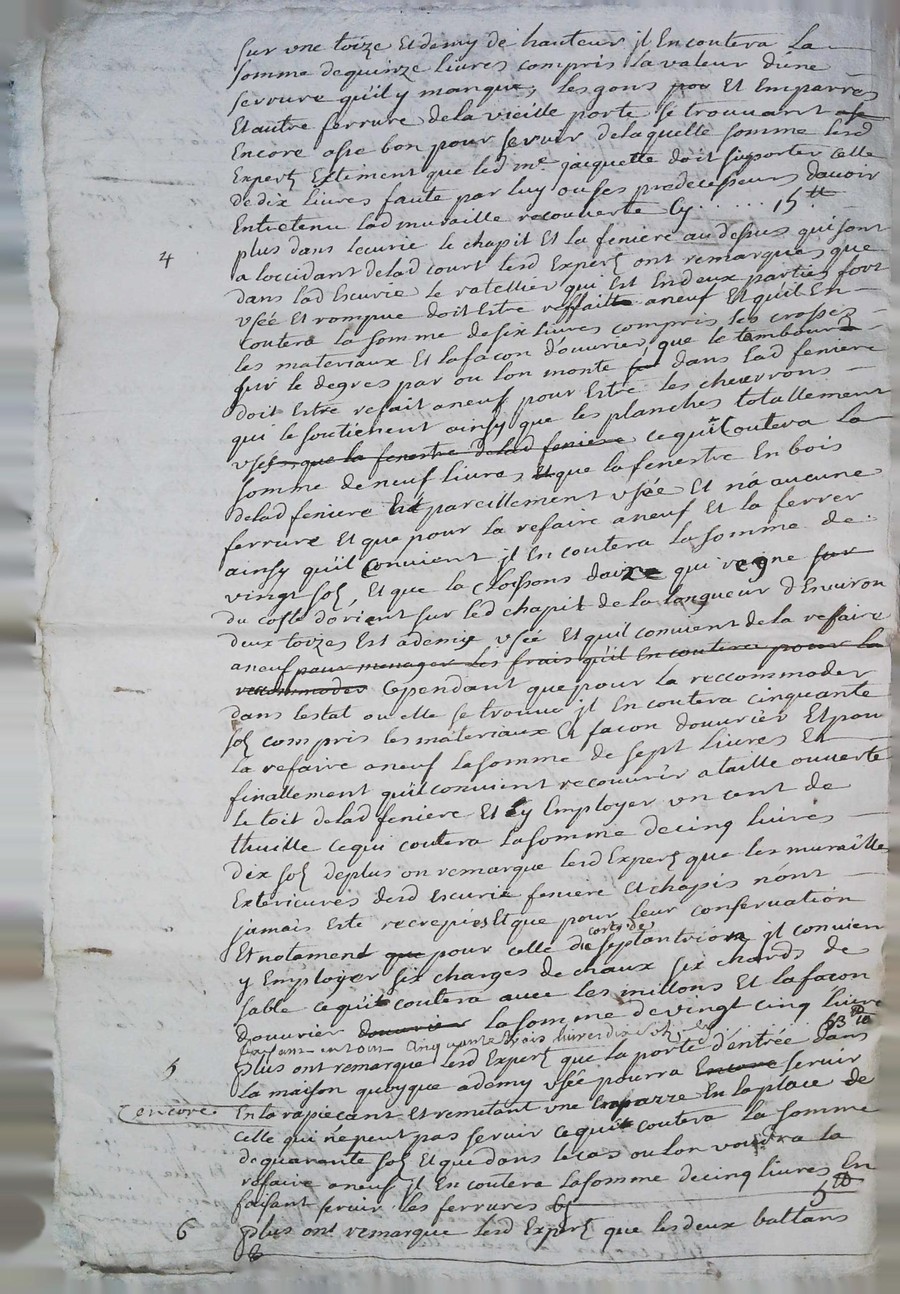 sur une toize Et demy de hauteur jl En coutera La
somme de quinze livres compris la valeur dune
serrure qu'il y manque, les gons pou Et Emparres
Et autre ferrure de la vieille porte se trouvant ase
Encore ase bon pour servir de laquelle somme lesd
Expertz Estiment que led me. jacquette doit suporter celle
de dix livres faute par luy ou ses predecesseurs davoir
Entretenu lad muraille recouverte Cy ...... 15 tt
4 plus dans lecurie le chapit Et la feniere au dessus qui sont
a loccidant de lad court lesd Expertz ont remarqués que
dans lad Escurie Le ratellier qui Est En deux parties fort
usée Et rompue doit Estre reffaitte aneuf Et quil En
coutera la somme de six livres compris les crosses
les materiaux Et la facon d'ouvrier, que le tembourd
sur le degres par ou lon monte dans Lad feniere
doit Estre refait aneuf pour Estre les chevrons
qui le soutienent ainsy que les planches totallement
usés que la fenestre de lad feniere ce qu'il Coutera La
somme de neuf livres Et que la fenestre En bois
de lad feniere Est pareillement usée Et n'a aucune
ferrure Et que pour la refaire aneuf Et la ferrer
ainsy qu'il Convient jl En coutera la somme de
vingt solz, Et que la cloissons qui regne sur
du costé dorient sur led chapit de la longueur d'Environ
deux toizes Est ademis usée Et quil convient de la refaire
aneuf pour menager les frais qu'il En coutera pour la
recommodes Cependant que pour la reccommoder
dans lestat ou elle se trouve jl En coutera cinquante
solz compris les materiaux Et facon douvrier Et pour
La refaire aneuf la somme de sept livres Et
finallement quil convient recouvrir ataille ouverte
Le toit de lad feniere Et y Employer un cent de
thuille ce qui coutera La somme de cinq livres
dix solz de plus on remarque lesd Expertz que les murailles
Exterieures desd Escurie feniere Et chapis n'ont
jamais Esté recrepies Et que pour Leur conservation
Et notament que pour celle du costé de septantrion jl convien
y Employer six charges de chaux six chards de
sable ce quil coutera avec les millons Et la facon
douvrier douvrier la somme de vingt cinq livres
faisant en tout Cinquante trois livres dix solz 53 tt 10
5 plus ont remarque lesd Expertz que la porte d'entrée dans
La maison quoyque ademy usée pourra Encore servir
encore En la rapiecant Et remetant une Emparre En la place de
celle qui ne peut pas servir ce quil coutera la somme
de quarante solz Et que dans le cas ou lon voudra la
refaire aneuf jl En coutera la somme de cinq livres En
faisant servir les ferrures cy 5 tt
6 plus ont remarque lesd Expertz que les deux battans